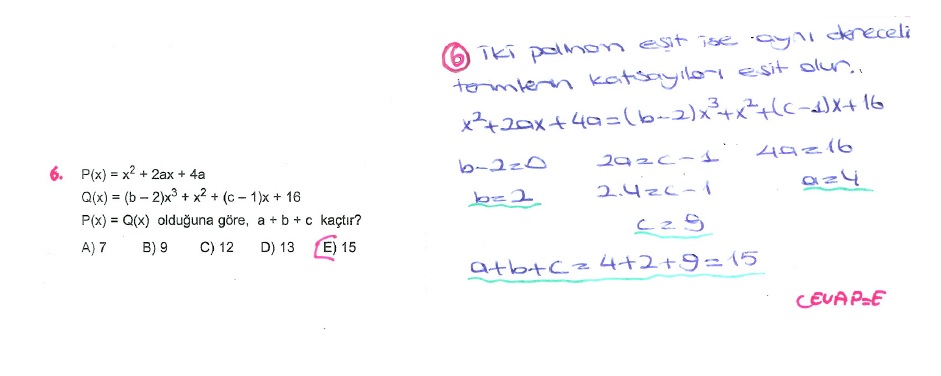 6. P(x) = x² + 2ax + 4a
Q(x) = (b – 2)x³ + x² + (c – 1)x + 16
P(x) = Q(x) olduğuna göre, a + b + c kaçtır?
A) 7 B) 9 C) 12 D) 13 E) 15
6 İki polinon eşit ise aynı dereceli
terimlerin katsayıları eşit olur..
x²+2ax+4a=(b-2)x³+x²+(c-1)x+16
b-2=0 2a=c-1 4a=16
b=2 2.4=c-1 a=4
c=9
a+b+c=4+2+9=15
CEVAP=E